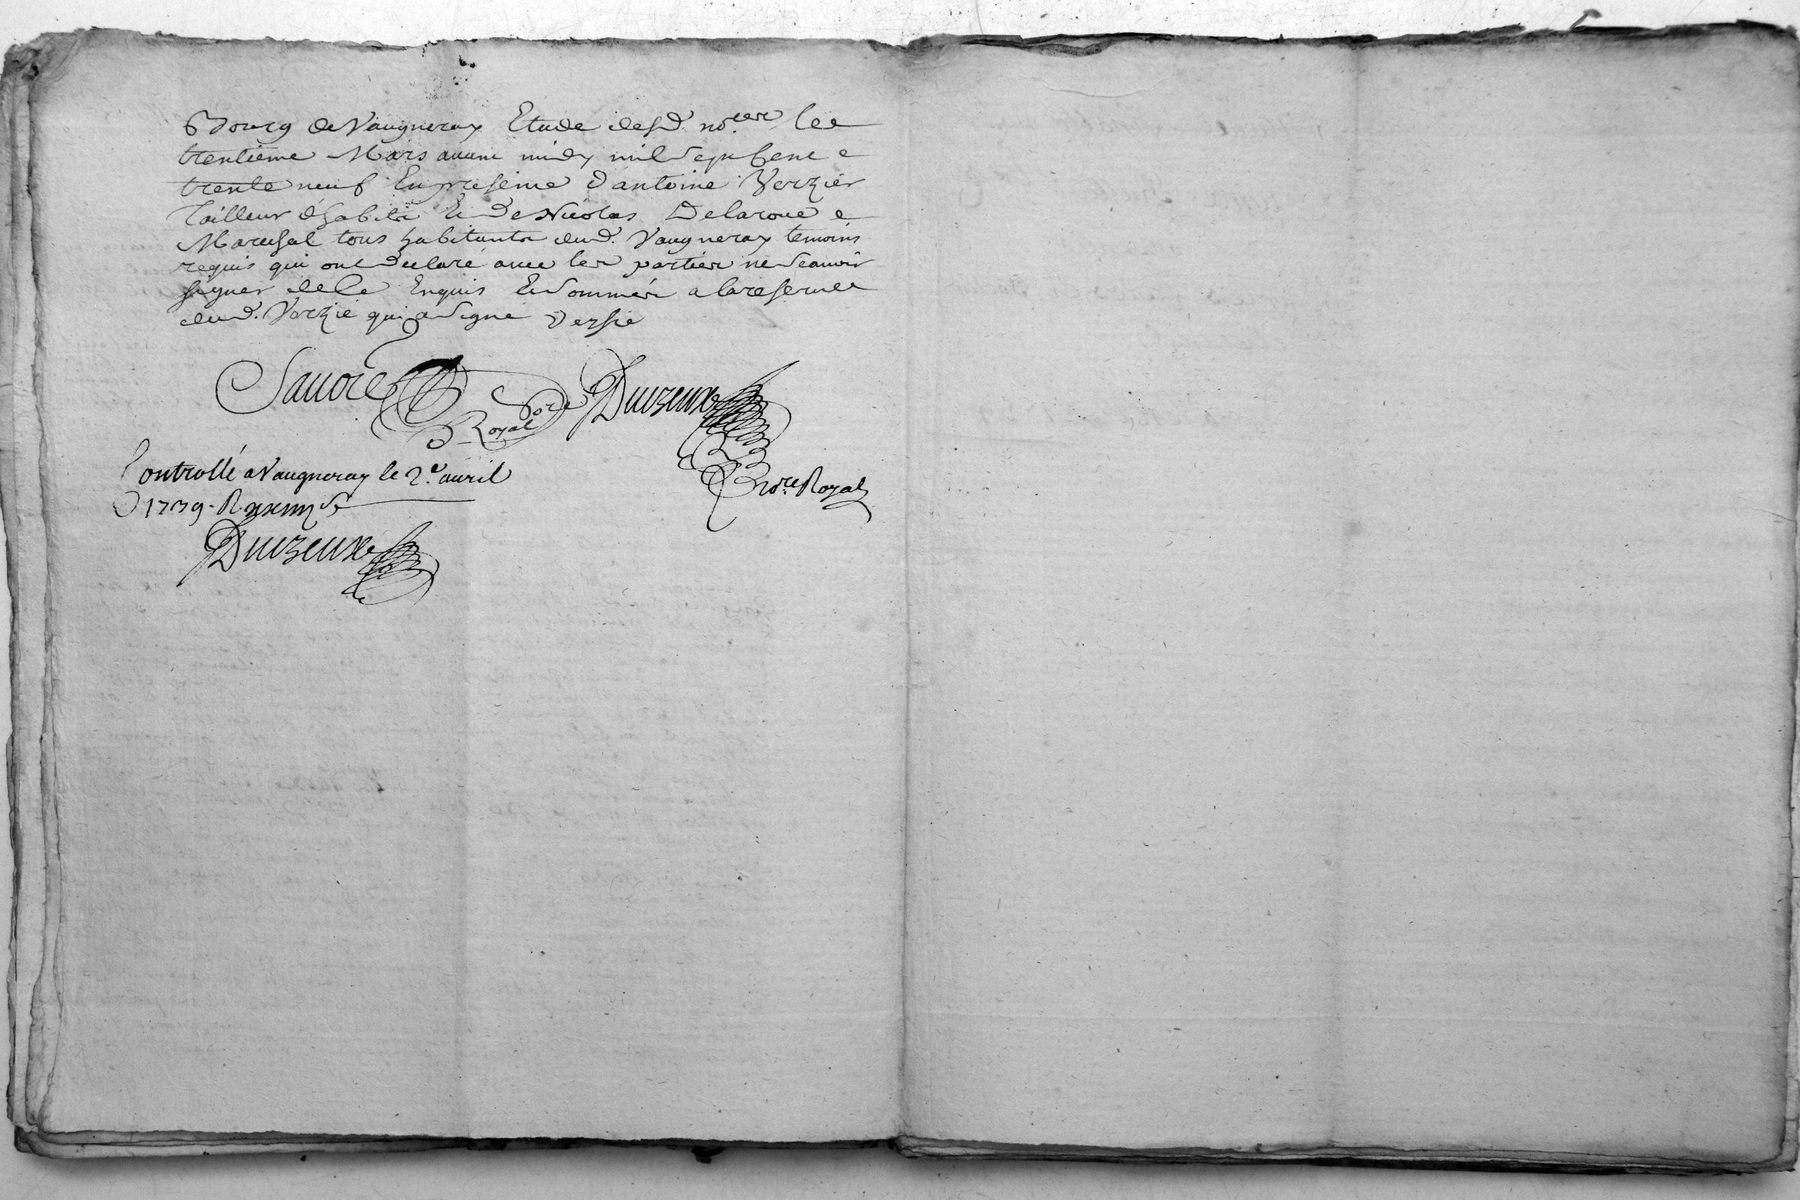 Bourg de Vaugneray Etude desd. no.res le
trentieme Mars avant midy mil sept cent
trente neuf En presence d'antoine Verzier
Tailleur d'habits Et de Nicolas Delaroue
Marechal tous habitants dud. Vaugneray temoins
requis qui ont declaré avec les parties ne scavoir
signer de ce Enquis Et sommés a la reserve
dud. Verzie qui a signe Versie
Sauoie Duvzeux
no.re Royal
no.re Royal
Controllé a Vaugneray le 2.e auril
1739. R
Duvzeux